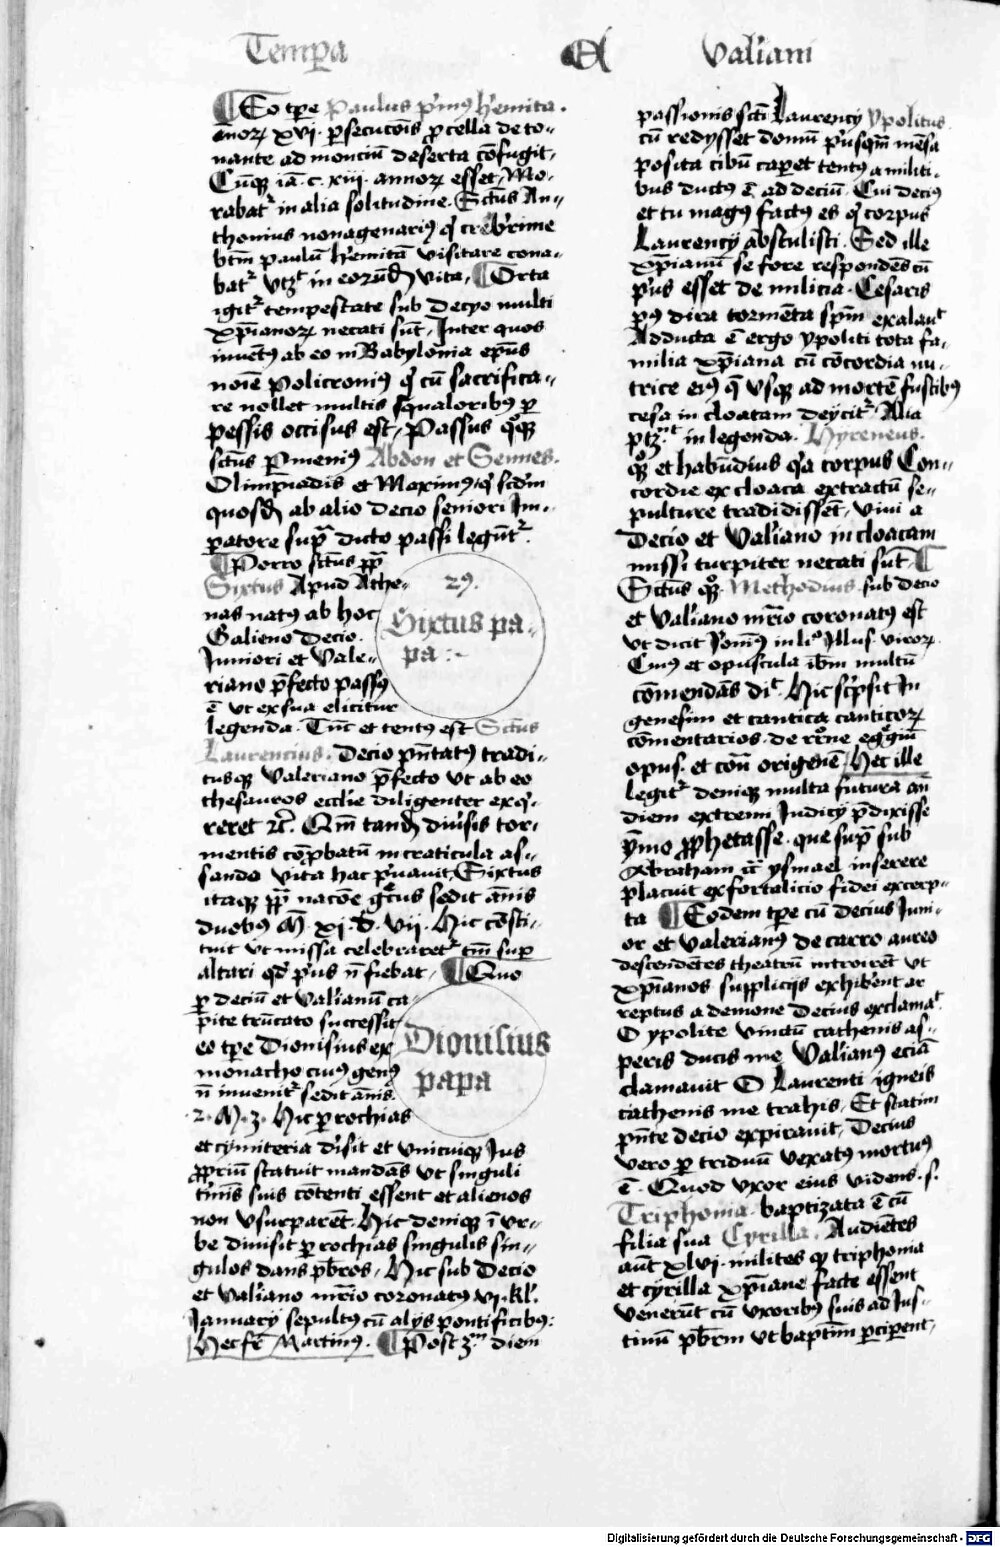 Tempa Et Valiani
¶ Eo tpe Paulus pimꝰ hemita.
annoꝝ xvj. psecucois pcella de to-
nante ad monciu deserta cofugit,
Cuqꝫ ia. c. xiij. annoꝝ esset, Mo-
rabatʳ in alia solitudine. Sctus An-
thonius nonagenariꝰ qͥ crebrime
btm paulu hemita visitare cona-
batʳ vtꝫ in eorund vita, ¶ Orta
igitʳ tempestate sub decyo multi
xpianoꝝ necati sut, Inter quos
inuetꝰ ab eo in Babylonia epus
noie Policroniꝰ qͥ cu sacrifica-
re nollet multis squaloribꝰ p
pessis occisus est, Passus qͦqꝫ
sctus Pmeniꝰ Abdon et Sennes.
Olimpiadis et Maximꝰ qͥ scdm
quosd ab alio decio seniori Im-
patore supᵃ dicto passi leguntʳ.
¶ Porro sctus pp
Sixtus Apud Athe-
nas natꝰ ab hoc
Galieno Decio
Juniori et Vale-
riano pfecto passꝰ
e vt ex sua elicitur
29.
Sixtus pa-
pa :-
legenda. Tuc et tentꝰ est Sctus
Laurencius. Decio pntatꝰ tradi-
tusqꝫ Valeriano pfecto vt ab eo
thesauros ecclie diligenter exqͥ-
reret ꝛc. Qm tand diuisis tor-
mentis copbatu in craticula as-
sando vita hac piuauit, Sixtus
itaqꝫ pp nacoe gͤcus sedit annis
duobus M. xj. d. vij. Hic consti-
tuit vt missa celebraretʳ tm sup
altari qd pius n fiebat, ¶ Quo
p deciu et Valianu ca-
pite truncato successit
eo tpe Dionisius ex
monacho cuiꝰ genꝰ
n inuenitʳ sedit annis
.2. M. 3. Hic prochias
Dionisius
papa
et cymiteria disit et vnicuiqꝫ Jus
ppriu statuit mandas vt singuli
tminis suis cotenti essent et alienos
non vsurparet. Hic deniqꝫ i vr-
be diuisit prochias singulis sin-
gulos dans pbros, Hic sub Decio
et Valiano mrio coronatꝰ vj. kl'.
January sepultꝰ cu alys pontificibꝰ:
Hec fr Martinꝰ. ¶ Post 3m diem
passionis scti Laurency ypolitus
cu redysset domu piusqm mesa
posita cibu capet tentꝰ a militi-
bus ductꝰ e ad deciu. Cui deciꝰ
et tu magꝰ factꝰ es qͥ corpus
Laurencij absculisti. Sed ille
xpianu se fore respondes cu
pius esset de milicia. Cesaris
pꝰ dira tormeta spm exalauit
Adducta e ergo ypoliti tota fa-
milia xpiana cu cocordia nu-
trice eiꝰ q vsqꝫ ad morte fustibꝰ
cesa in cloatam deycitʳ. Alia
ptꝫ in legenda. Hyreneus.
qͦqꝫ et habundius qͥa corpus Con-
cordie ex cloaca extractu se-
pulture tradidisset, viui a
Decio et Valiano in cloacam
missi turpiter necati sut ¶
Sctus qͦqꝫ Methodius. sub decio
et Valiano mrio coronatꝰ est
vt dicit Jeronimꝰ in li° Illus. viroꝝ.
Cuiꝰ et opuscula ibm multu
comendas dit. Hic scpsit In
genesim et cantica canticoꝝ
comentarios. de rroe egregiu
opus. et con origene, Hec ille
legitʳ deniqꝫ multa futura an
diem extremi Judicy pdixisse
ymo prophetasse. que supᵃ sub
Abraham tt ysmael inserere
placuit ex fortalicio fidei excerp-
ta ¶ Eodem tpe cu Decius Juni-
or et valerianꝰ de carro aureo
descendetes theatru introiret vt
xpianos supplicijs exhibent ar
reptus a demone Decius exclamat
O ypolite vinctu cathenis as-
peris ducis me Valianꝰ ecia
clamauit O Laurenti igneis
cathenis me trahis, Et statim
pnte decio expirauit, Decius
vero p triduu vexatꝰ mortuꝰ
e. Quod vxor eius videns. s.
Triphonia. baptizata e cu
filia sua Cyrilla. Audietes
aut xlvi. milites qͥ triphonia
et cyrilla xpiane facte essent
venerut cu vxoribꝰ suis ad Jus-
tinu pbrm vt baptism pciperent,
Digitalisierung gefördert durch die Deutsche Forschungsgemeinschaft - DFG